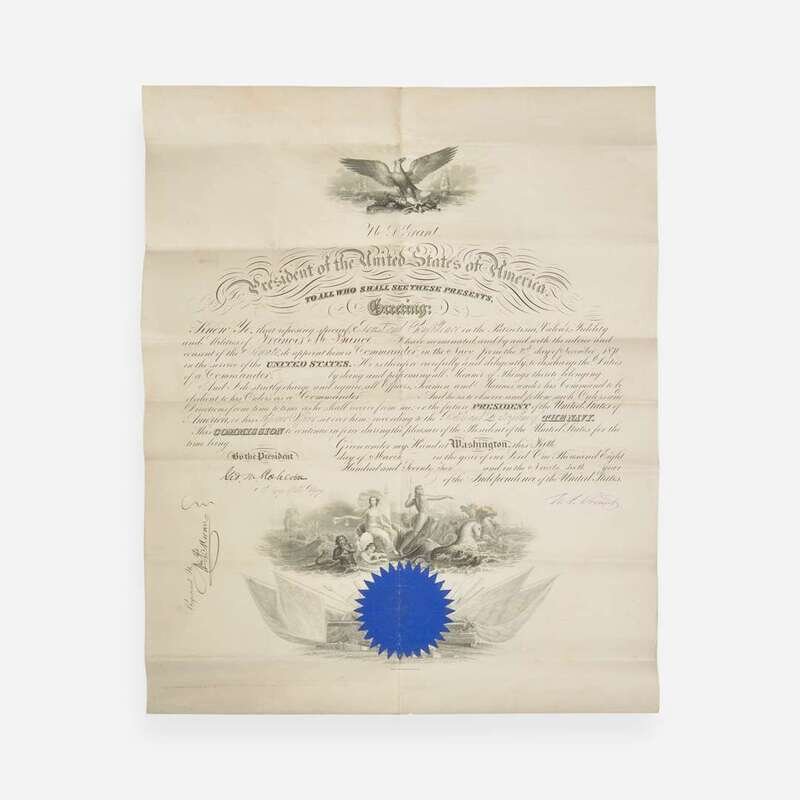 President of the United States of America.
TO ALL WHO SHALL SEE THESE PRESENTS,
Greeting:
Know Ye, that reposing special Trust and Confidence in the Patriotism, Valor, Fidelity
and Abilities of Francis M. Bunce I have nominated and by and with the advice and
consent of the Senate do appoint him a Commander in the Navy from the day of November, 1871
in the service of the UNITED STATES. He is therefore carefully and diligently to discharge the Duties
of a Commander by doing and performing all Manner of Things thereto belonging.
And I do strictly charge and require all Officers, Seamen and Marines under his Command to be
obedient to his Orders as a Commander And he is to observe and follow such Orders and
Directions from time to time as he shall receive from me, or the future PRESIDENT of the United States of
America, or his Superior Officer set over him, according to the Rules and Discipline of THE NAVY.
This COMMISSION to continue in force during the pleasure of the President of the United States, for the
time being.
Given under my Hand at Washington, this Fifth
day of March in the year of our Lord One Thousand Eight
Hundred and Seventy Two and in the Ninety Sixth year
of the Independence of the United States.
By the President
Geo. M. Robeson